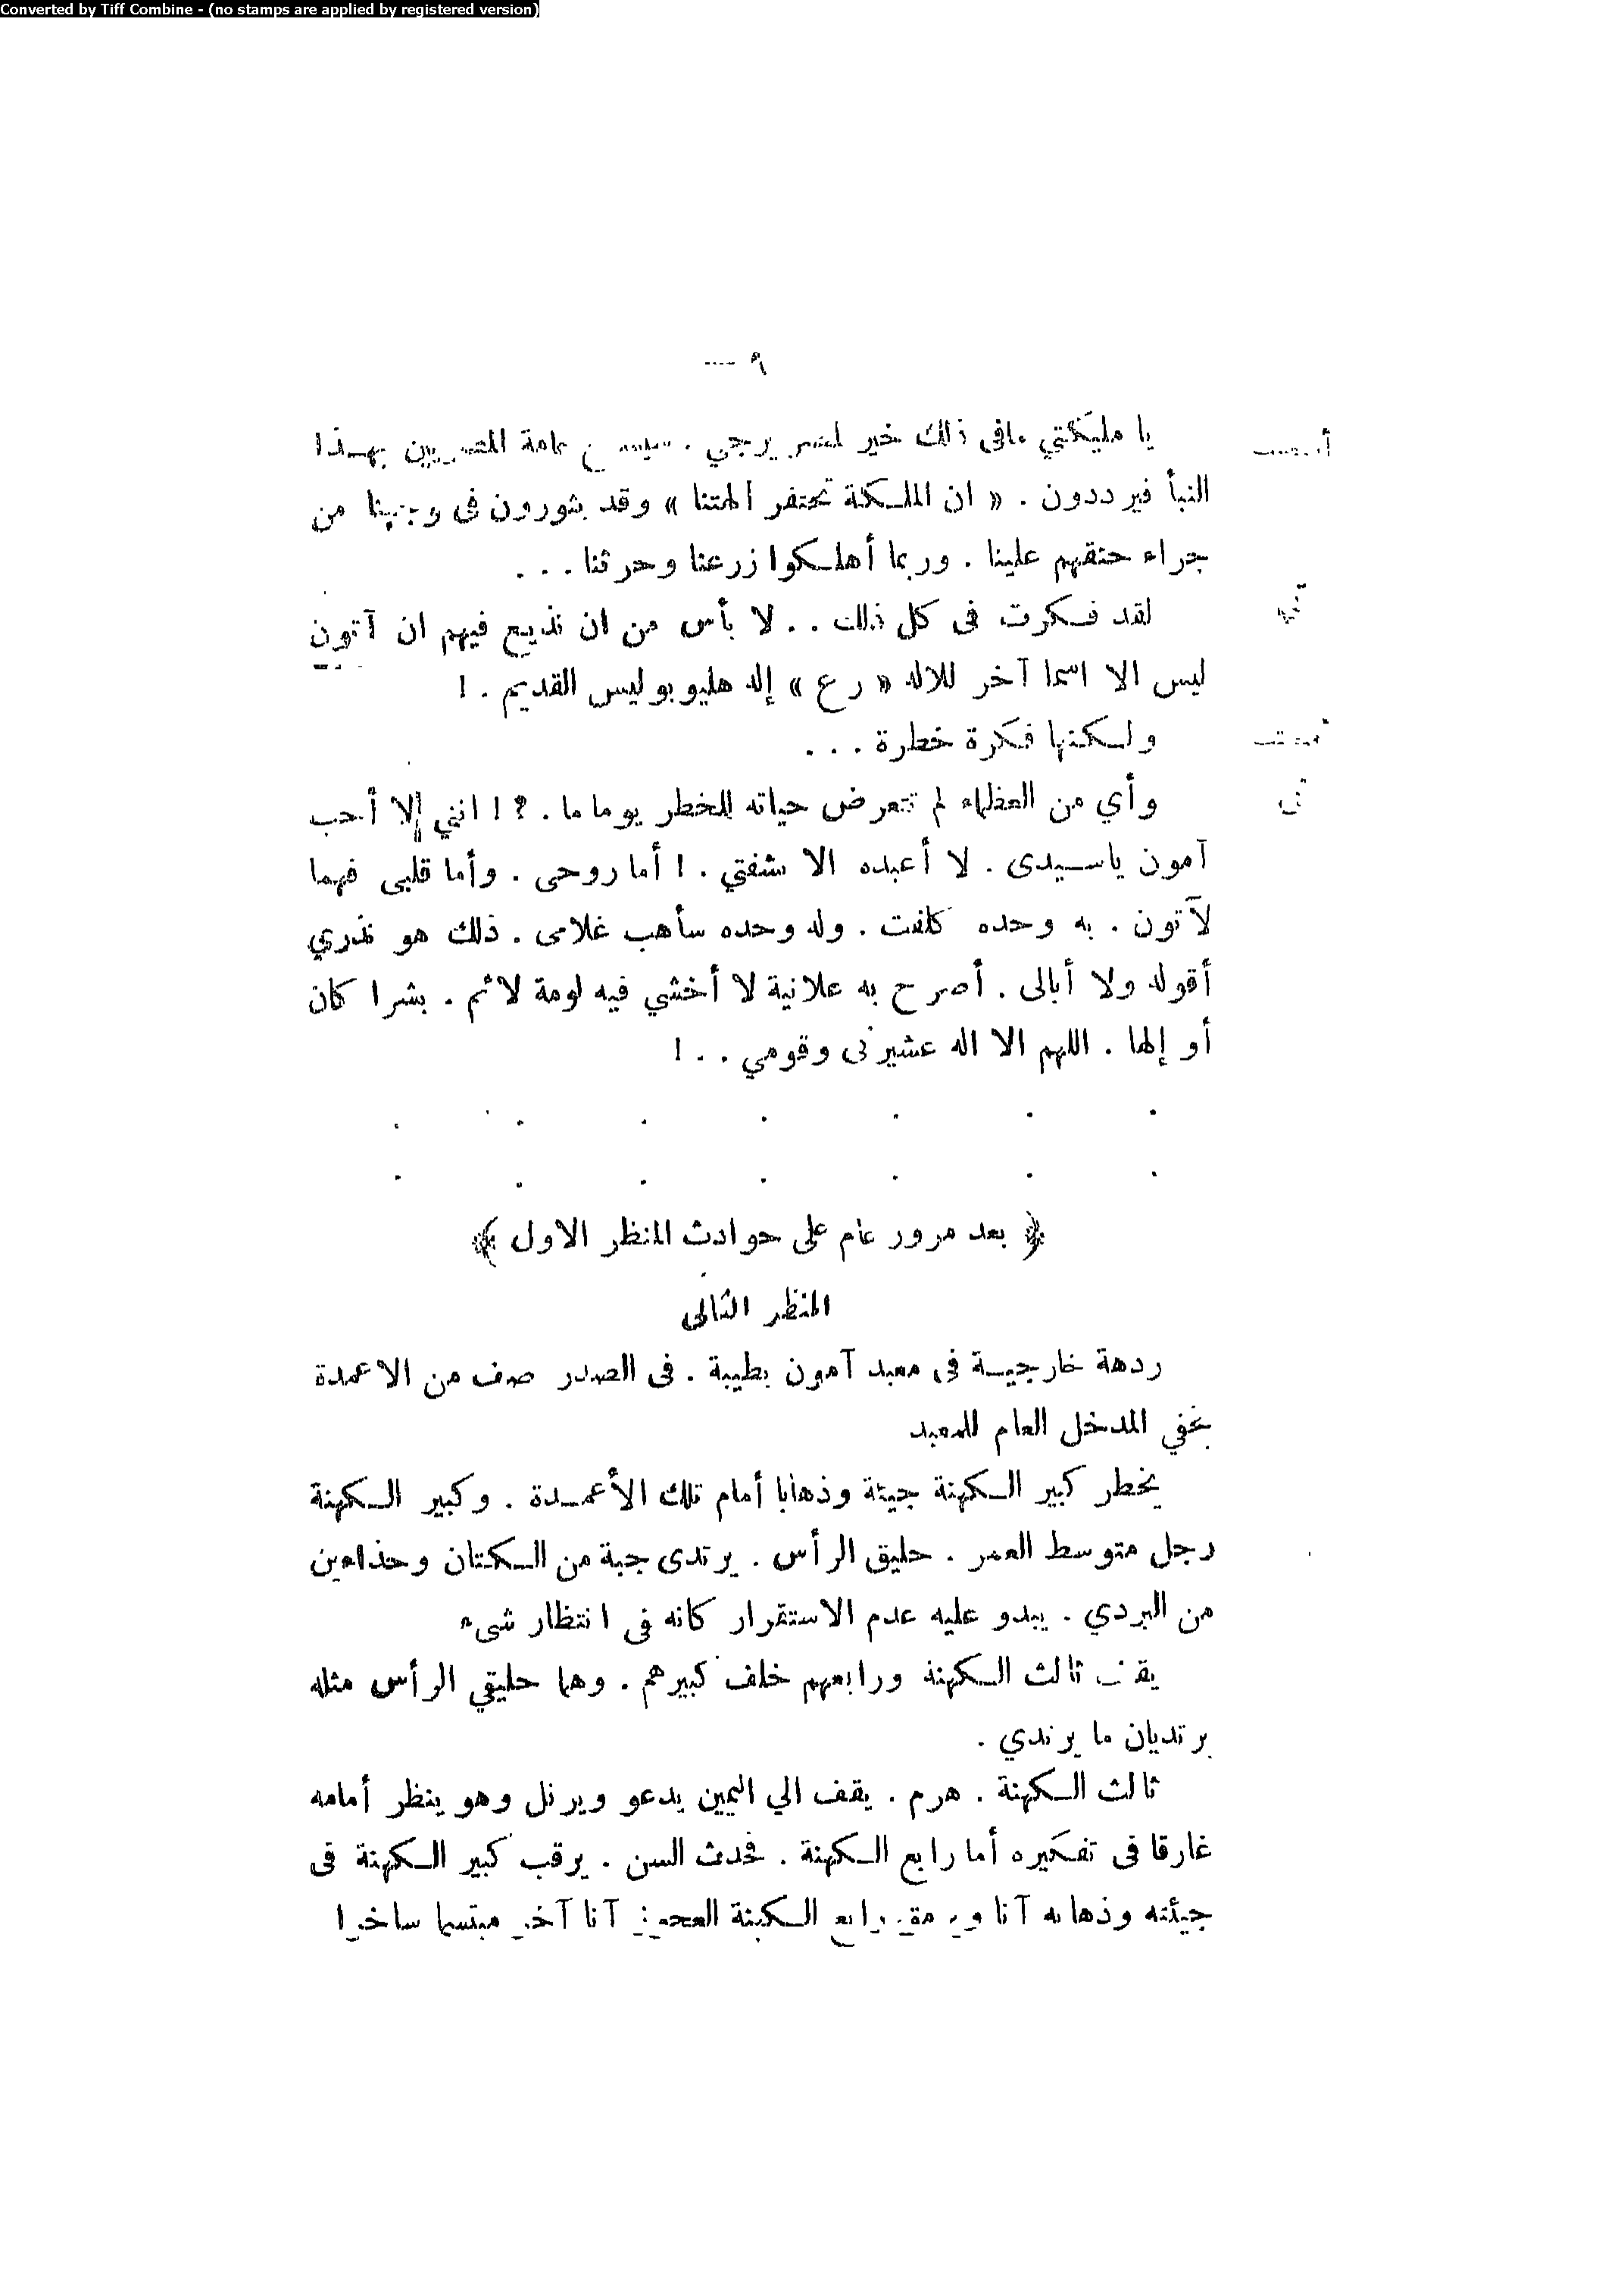 Converted by Tiff Combine - (no stamps are applied by registered version)
٩ —
يا مليكتي مافى ذلك خير لمصر يرجي . عامة المصريين بهذا
النبأ فيرددون . « ان الملكة تحتقر آلهتنا » وقد يثورون فى وجهنا من
جراء حنقهم علينا . وربما أهلكوا زرعنا وحرثنا . . .
تى لقد فكرت فى كل ذلك . . لا بأس من ان نذيع فيهم ان آتون
ليس الا اسما آخر للاله « رع » إله هليوبوليس القديم . !
ولكنها فكرة خطرة . . .
تى وأي من العظماء لم تتعرض حياته للخطر يوما ما . ؟ ! انني لا أحب
آمون ياسيدى . لا أعبده الا شفتي . ! أما روحى . وأما قلبى فهما
لآتون . به وحده كلفت . وله وحده سأهب غلامى . ذلك هو نذري
أقوله ولا أبالى . أصرح به علانية لا أخشي فيه لومة لائم . بشرا كان
أو إلها . اللهم الا اله عشيرتى وقومي . . !
. . . . . . .
. . . . . . .
﴿ بعد مرور عام على حوادث المنظر الاول ﴾
المنظر الثانى
ردهة خارجية فى معبد آمون بطيبة . فى الصدر صف من الاعمدة
يخفي المدخل العام للمعبد
يخطر كبير الكهنة جيئة وذهابا أمام تلك الأعمدة . وكبير الكهنة
رجل متوسط العمر . حليق الرأس . يرتدى جبة من الكتان وحذاءين
من البردي . يبدو عليه عدم الاستقرار كانه فى انتظار شىء
يقف ثالث الكهنة ورابعهم خلف كبيرهم . وهما حليقي الرأس مثله
يرتديان ما يرتدي .
ثالث الكهنة . هرم . يقف الي اليمين يدعو ويرتل وهو ينظر أمامه
غارقا فى تفكيره أما رابع الكهنة . فحدث السن . يرقب كبير الكهنة فى
جيئته وذهابه آنا ويرمق رابع الكهنة العجوز آنا آخر مبتسما ساخرا